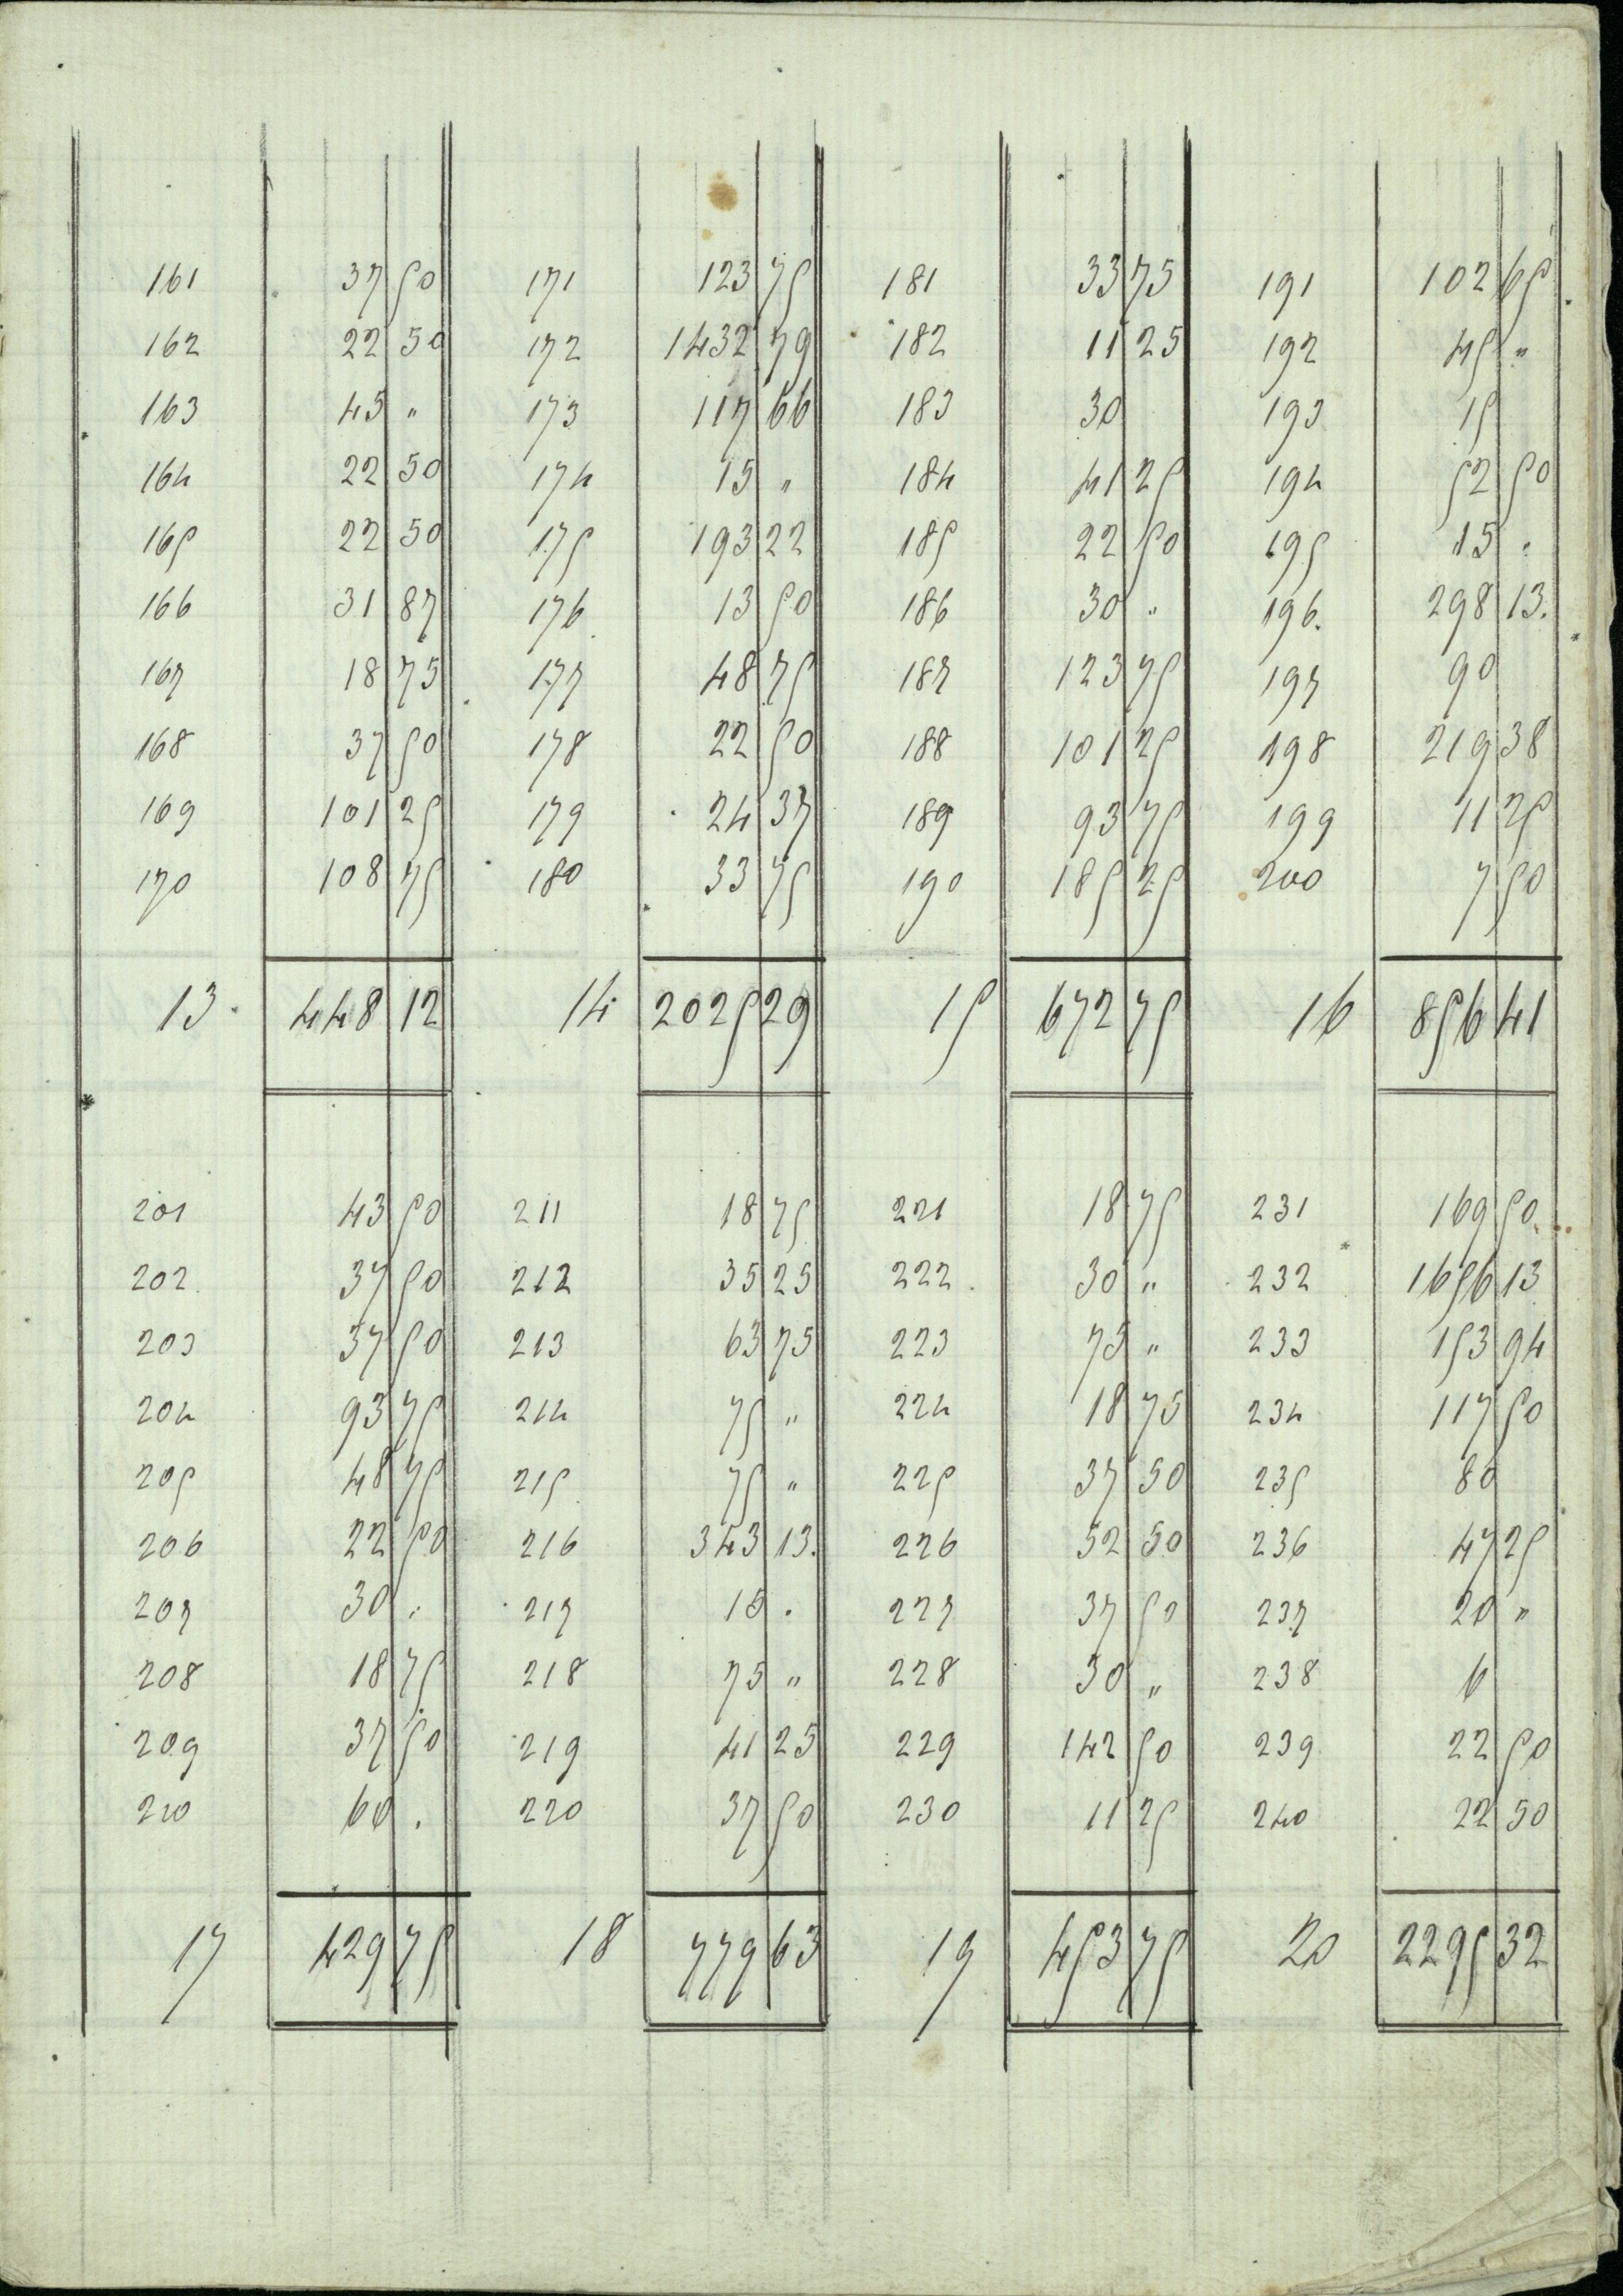 161 37 50 171 123 75 181 33 75 191 102 65
162 22 50 172 1432 79 182 11 25 192 45 "
163 45 " 173 117 66 183 30 193 15
164 22 50 174 15 " 184 41 25 194 52 50
165 22 50 175 193 22 185 22 50 195 15 "
166 31 87 176. 13 50 186 30 " 196. 298 13.
167 18 75 177 48 75 187 123 75 197 90
168 37 50 178 22 50 188 101 25 198 219 38
169 101 25 179 24 37 189 93 75 199 11 25
170 108 75 180 33 75 190 185 25 200 7 50
13. 448 12 14. 2025 29 15 672 75 16 856 41
201 43 50 211 18 75 221 18 75 231 169 50.
202. 37 50 212 35 25 222. 30 " 232 1656 13
203 37 50 213 63 75 223 75 " 233 153 94
204 93 75 214 75 " 224 18 75 234 117 50
205 48 75 215 75 " 225 37 50 235 80
206 22 50 216 343 13. 226 52 50 236 47 25
207 30 " 217 15 . 227 37 50 237 20 "
208 18 75 218 75 " 228 30 " 238 6
209 37 50 219 41 25 229 142 50 239 22 50
210 60 . 220 37 50 230 11 25 240 22 50
17 429 75 18 779 63 19 453 75 20 2295 32